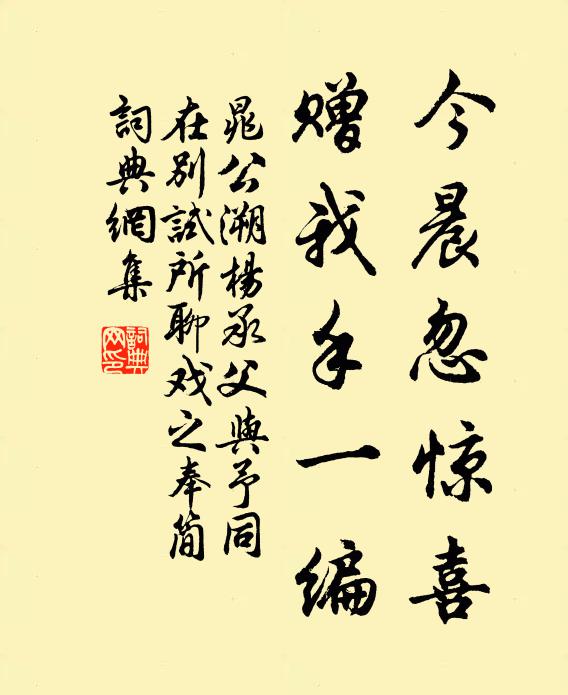 今晨忽惊喜
赠我手一编
晁公溯杨承父與予同
在别試所聊戏之奉简
詞典網集
詞典
网印